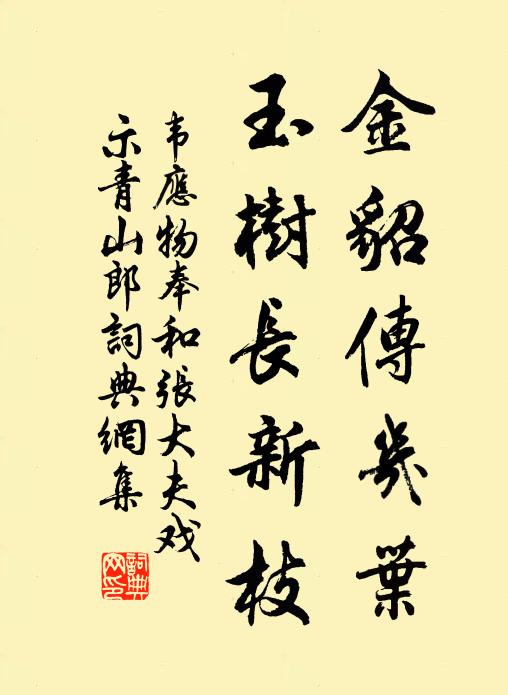 金貂傳幾葉
玉樹長新枝
韦應物奉和張大夫戏
示青山郎詞典網集
詞典網印